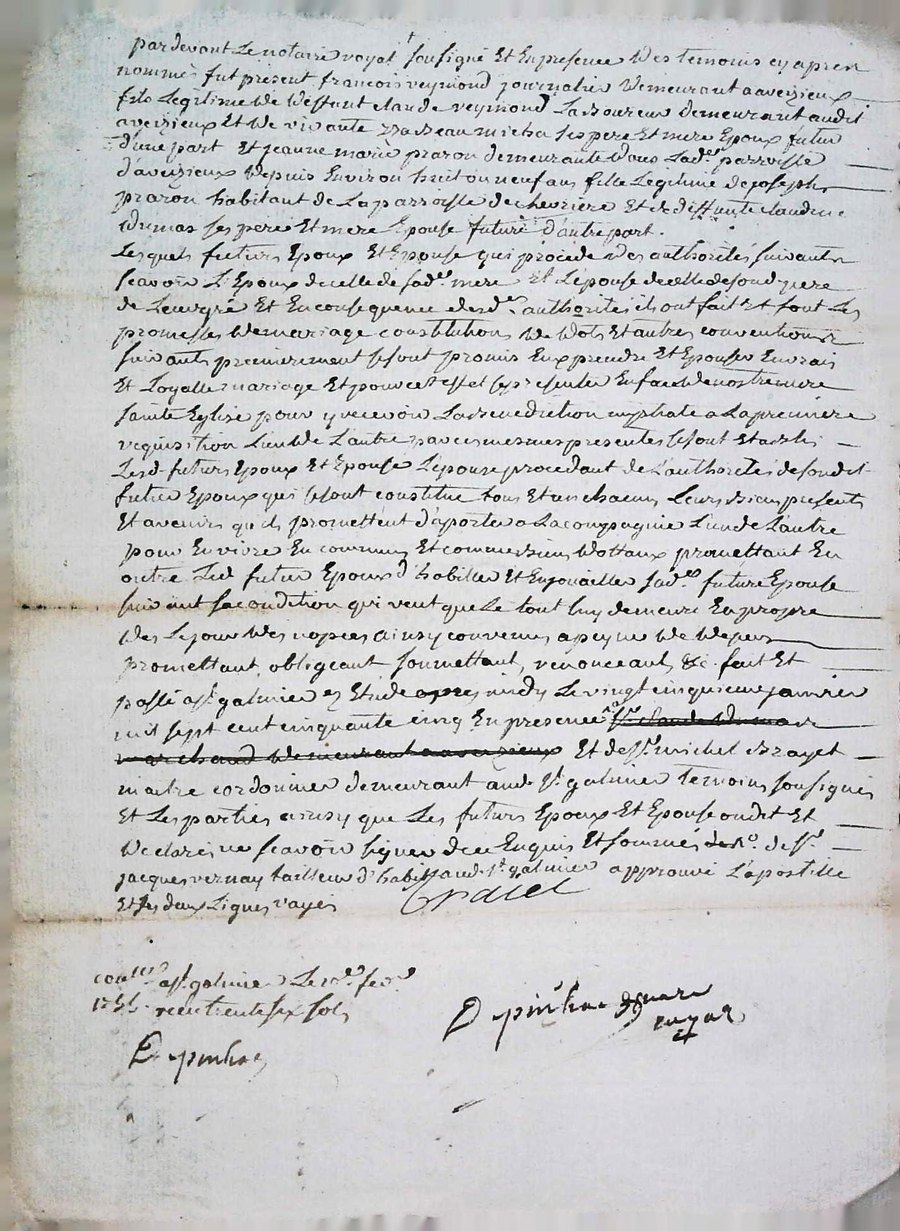 pardevant Le notaire royal soussigné Et En presence Des temoins cy apres
nommés fut présent francois veymond journalier Demeurant a aveizieux
fils Legitime De Deffunt claude veymond Laboureur demeurant audit
aveizieux Et De vivante micha ses pere Et mere Epoux futur
d'une part Et jeanne marie prazon demeurante Dans Lade. parroisse
d'aveizieux Depuis Environ huit ou neuf ans fille Legitime de joseph
prazon habitant de La parroisse de chevriere Et de deffunte claudine
Dumas ses pere Et mere Epouse future d'autre part.
Lesquels futurs Epoux Et Epouse qui procede Des authorités suivantes
scavoir L'Epoux de celle de sade. mere Et L'épouse de celle de sond. pere
de Leur gré Et En consequence desde. authorités ils ont fait Et font Les
promesses De mariage constitutions De Dots Et autres conventions
suivants premierement se sont promis Enxprendre Et Epouser En vrais
Et Loyalle mariage Et pour cet effet se presenter En face De nostre mere
sainte Eglise pour y recevoir La benediction nuptiale a La premiere
requisition L'un De L'autre par ces mesmes presentes se sont Etablis
Lesd. futurs Epoux Et Epouse L'épouse procedant de L'authorité de sondit
futur Epoux qui se sont constitué tous Et un chacun Leurs biens presents
Et avenirs qu'ils promettent d'aporter a La compagnie L'un de L'autre
pour En vivre En commun Et comme biens Dottaux promettant En
outre Led. futur Epoux d'habiller Et Enjouailler sade. future Epouse
suivant sa condition qui veut que Le tout luy demeure En propre
Des Le jour Des nopces ainsy convenus a peyne De Depens
promettant, obligeant, soumettant, renonceant, &c. fait Et
passé a st. galmier Etude apres midy Le vingt cinquieme janvier
mil sept cent cinquante cinq En presence sr. claude Dumas
marchand Demeurant a aveizieux Et de sr. michel Brazet
maitre cordonnier demeurant aud. st. galmier temoins soussignés
Et Les parties ainsy que Les futurs Epoux Et Epouse ont dit Et
Declaré ne scavoir signer de ce Enquis Et sommés de sr.
jacques vernay tailleur d'habits aud. st. galmier approuvé L'apostille
Et Les deux Lignes rayés
conllé. a st. galmier Le fevr.
1755. recu trente six sols